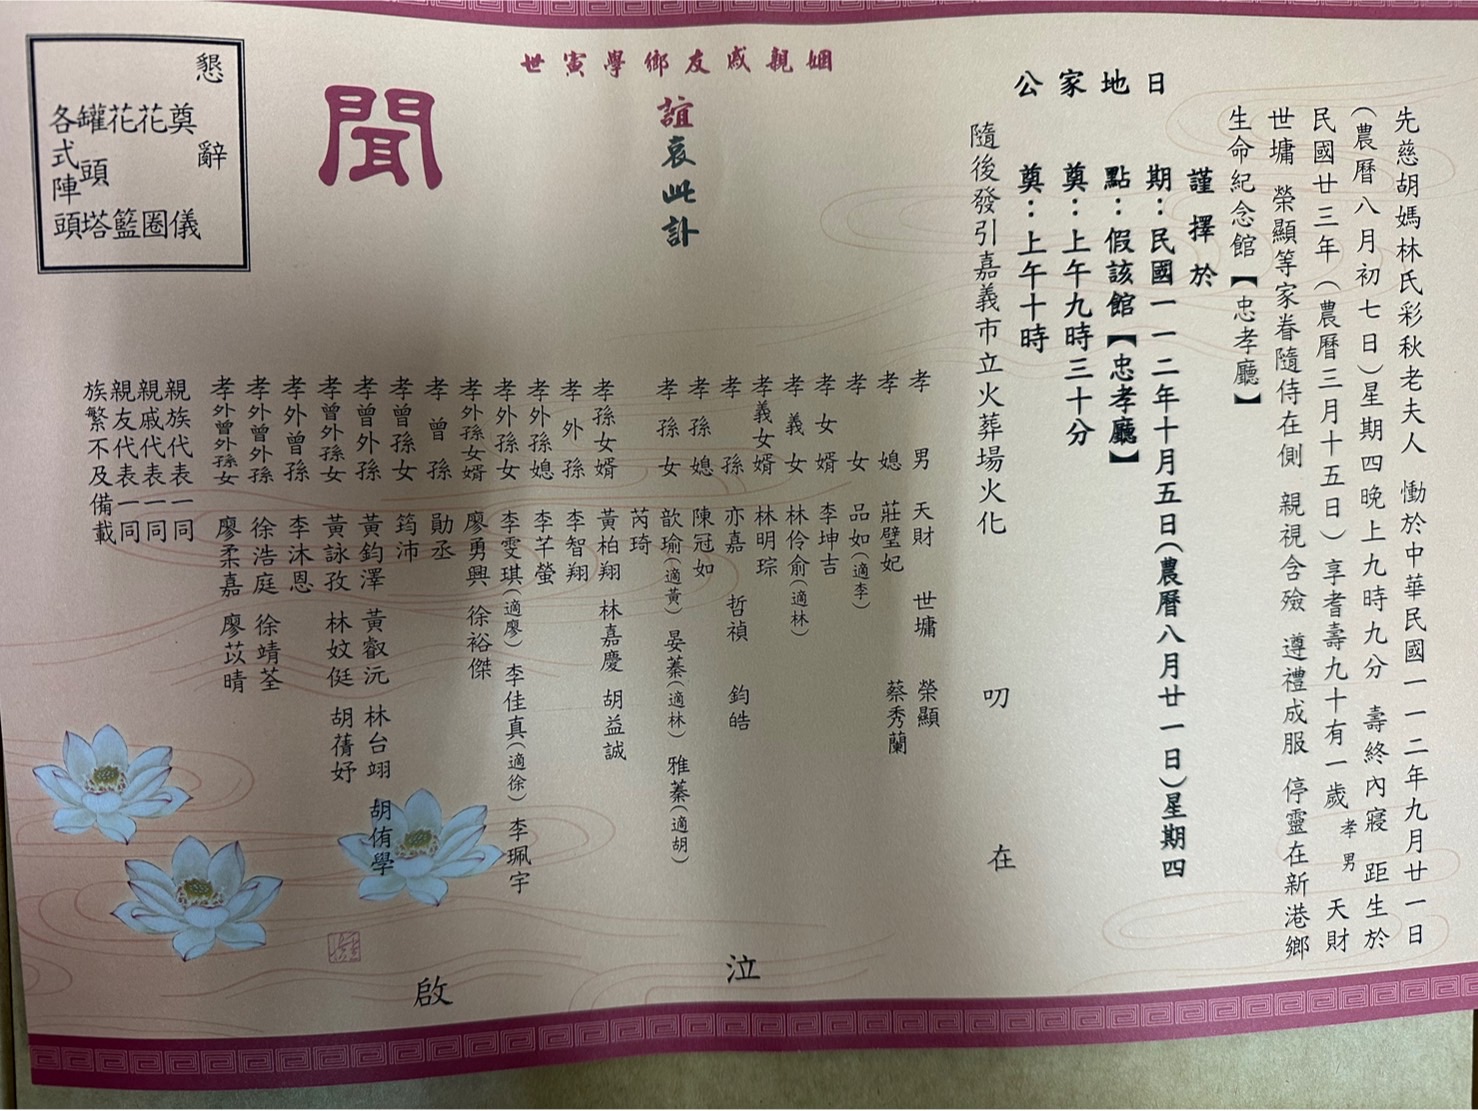 先慈胡媽林氏彩秋老夫人 慟於中華民國一一二年九月廿一日
(農曆八月初七日)星期四晚上九時九分 壽終內寢 距生於
民國廿三年(農曆三月十五日)享耆壽九十有一歲 孝男 天財
世墉 榮顯等家眷隨侍在側 親視含殮 遵禮成服 停靈在新港鄉
生命紀念館【忠孝廳】
謹擇於
日期:民國一一二年十月五日(農曆八月廿一日)星期四
地點:假該館【忠孝廳】
家奠:上午九時三十分
公奠:上午十時
隨後發引嘉義市立火葬場火化
叨在
姻親戚友鄉學寅世
誼哀此訃
聞
孝男 天財 世墉 榮顯
孝媳 莊璧妃 蔡秀蘭
孝女 品如(適李)
孝女婿 李坤吉
孝義女 林伶俞(適林)
孝義女婿 林明琮
孝孫 亦嘉 哲禎 鈞皓
孝孫媳 陳冠如
孝孫女 歆瑜(適黃) 晏蓁(適林) 雅蓁(適胡)
芮琦
孝孫女婿 黃柏翔 林嘉慶 胡益誠
孝外孫 李智翔
孝外孫媳 李芊螢
孝外孫女 李雯琪(適廖) 李佳真(適徐) 李珮宇
孝外孫女婿 廖勇興 徐裕傑
孝曾孫 勛丞
孝曾孫女 筠沛
孝曾外孫 黃鈞澤 黃叡沅 林台翊 胡侑學
孝曾外孫女 黃詠孜 林妏侹 胡蒨妤
孝外曾孫 李沐恩
孝外曾外孫 徐浩庭 徐靖荃
孝外曾外孫女 廖柔嘉 廖苡晴
親族代表一同
親戚代表一同
親友代表一同
族繁不及備載
泣啟
懇辭
奠儀
花圈
花籃
罐頭塔
各式陣頭